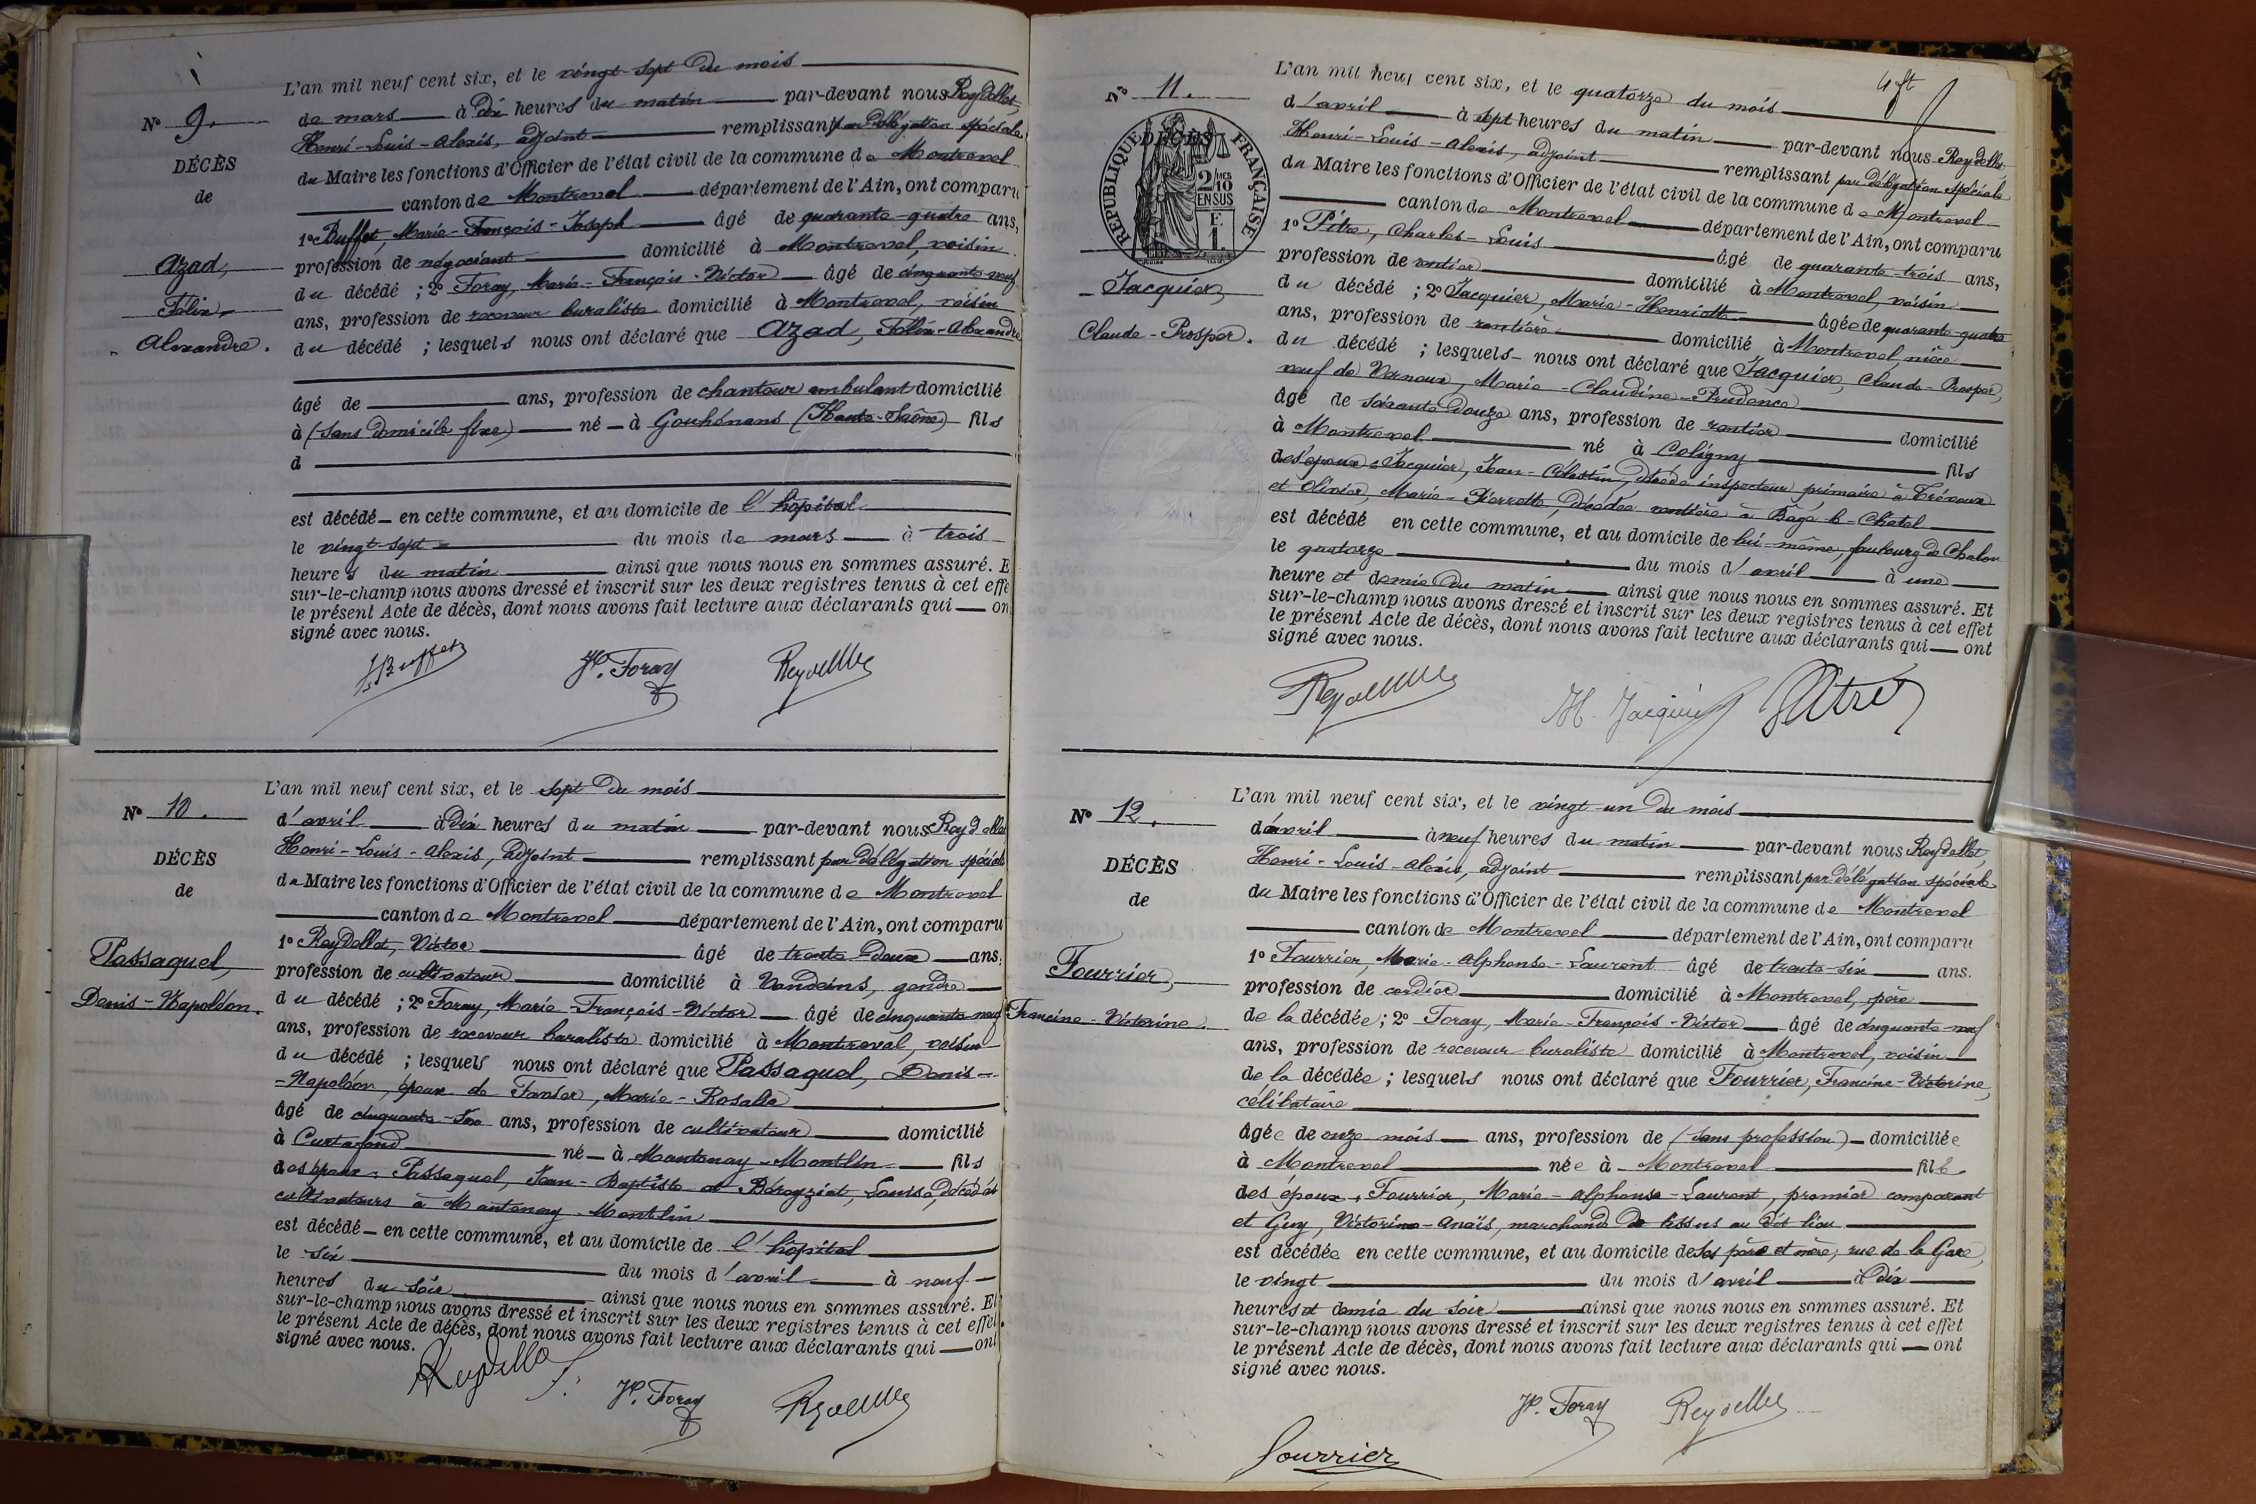 L'an mil neuf cent six, et le vingt-sept du mois
N° 9.
de mars à dix heures du matin par-devant nous Reydellet,
Henri-Louis-Alexis, adjoint remplissant par délégation spéciale
DÉCÈS
du Maire les fonctions d'Officier de l'état civil de la commune de Montrevel
de
canton de Montrevel département de l'Ain, ont comparu
1° Buffet, Marie-François-Joseph âgé de quarante-quatre ans,
Azad,
profession de négociant domicilié à Montrevel, voisin
du décédé ; 2° Foray, Marie-François-Victor âgé de cinquante-neuf
Félix-
ans, profession de receveur buraliste domicilié à Montrevel, voisin
Alexandre.
du décédé ; lesquels nous ont déclaré que Azad, Félix-Alexandre
âgé de ans, profession de chanteur ambulant domicilié
à (sans domicile fixe) né à Gouhénans (Haute-Saône) fils
d
est décédé en cette commune, et au domicile de l'hôpital
le vingt-sept du mois de mars à trois
heures du matin ainsi que nous nous en sommes assuré. E
sur-le-champ nous avons dressé et inscrit sur les deux registres tenus à cet effe
le présent Acte de décès, dont nous avons fait lecture aux déclarants qui on
signé avec nous.
Buffet Foray Reydellet
L'an mil neuf cent six, et le sept du mois
N° 10.
d'avril à dix heures du matin par-devant nous Reydellet
Henri-Louis-Alexis, adjoint remplissant par délégation spéciale
DÉCÈS
du Maire les fonctions d'Officier de l'état civil de la commune de Montrevel
de
canton de Montrevel département de l'Ain, ont comparu
1° Reydellet, Victor âgé de trente-deux ans,
Passaquel,
profession de cultivateur domicilié à Vandeins, gendre
Denis-Napoléon.
du décédé ; 2° Foray, Marie-François-Victor âgé de cinquante-neuf
ans, profession de receveur buraliste domicilié à Montrevel, voisin
du décédé ; lesquels nous ont déclaré que Passaquel, Denis-
-Napoléon, époux de Favier, Marie-Rosalie
âgé de cinquante- ans, profession de cultivateur domicilié
à Curtafond né à Mantenay-Montlin fils
des époux Passaquel, Jean-Baptiste et Béroyziat, Louise, décédés
cultivateurs à Mantenay-Montlin
est décédé en cette commune, et au domicile de l'hôpital
le six du mois d'avril à neuf
heures du soir ainsi que nous nous en sommes assuré. Et
sur-le-champ nous avons dressé et inscrit sur les deux registres tenus à cet effet
le présent Acte de décès, dont nous avons fait lecture aux déclarants qui ont
signé avec nous.
Reydellet Foray Reydellet
L'an mil neuf cent six, et le quatorze du mois
N° 11.
d'avril à sept heures du matin par-devant nous Reydellet,
Henri-Louis-Alexis, adjoint remplissant par délégation spéciale
DÉCÈS
RÉPUBLIQUE FRANÇAISE
2/10 MES EN SUS
F. 1.
du Maire les fonctions d'Officier de l'état civil de la commune de Montrevel
canton de Montrevel département de l'Ain, ont comparu
1° Pitre, Charles-Louis âgé de quarante-trois ans,
profession de rentier domicilié à Montrevel, voisin
Jacquier,
du décédé ; 2° Jacquier, Marie-Henriette âgée de quarante-quatre
Claude-Prosper.
ans, profession de rentière domicilié à Montrevel, nièce
du décédé ; lesquels nous ont déclaré que Jacquier, Claude-Prosper,
veuf de Vernoux, Marie-Claudine-Prudence
âgé de soixante-douze ans, profession de rentier domicilié
à Montrevel né à Coligny fils
des époux Jacquier, Jean-Célestin, décédé inspecteur primaire à Trévoux
et Olivier, Marie-Pierrette, décédée rentière à Bâgé-le-Châtel
est décédé en cette commune, et au domicile de lui-même, faubourg de Chalon
le quatorze du mois d'avril à une
heure et demie du matin ainsi que nous nous en sommes assuré. Et
sur-le-champ nous avons dressé et inscrit sur les deux registres tenus à cet effet
le présent Acte de décès, dont nous avons fait lecture aux déclarants qui ont
signé avec nous.
Reydellet H. Jacquier Pitre
L'an mil neuf cent six, et le vingt-un du mois
N° 12.
d'avril à neuf heures du matin par-devant nous Reydellet,
Henri-Louis-Alexis, adjoint remplissant par délégation spéciale
DÉCÈS
du Maire les fonctions d'Officier de l'état civil de la commune de Montrevel
de
canton de Montrevel département de l'Ain, ont comparu
1° Fourrier, Marie-Alphonse-Laurent âgé de trente-six ans.
Fourrier,
profession de cordier domicilié à Montrevel, père
Francine-Victorine.
de la décédée ; 2° Foray, Marie-François-Victor âgé de cinquante-neuf
ans, profession de receveur buraliste domicilié à Montrevel, voisin
de la décédée ; lesquels nous ont déclaré que Fourrier, Francine-Victorine,
célibataire
âgée de onze mois ans, profession de (sans profession) domiciliée
à Montrevel née à Montrevel fille
des époux Fourrier, Marie-Alphonse-Laurent, premier comparant
et Guy, Victorine-Anaïs, marchande de tissus au dit lieu
est décédée en cette commune, et au domicile de ses père et mère, rue de la Gare,
le vingt du mois d'avril à dix
heures et demie du soir ainsi que nous nous en sommes assuré. Et
sur-le-champ nous avons dressé et inscrit sur les deux registres tenus à cet effet
le présent Acte de décès, dont nous avons fait lecture aux déclarants qui ont
signé avec nous.
Foray Reydellet
Fourrier